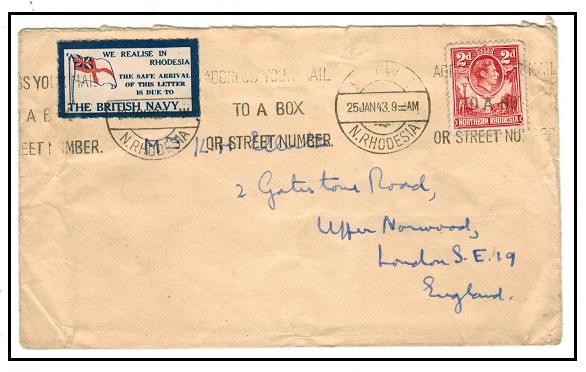 WE REALISE IN
RHODESIA
THE SAFE ARRIVAL
OF THIS LETTER
IS DUE TO
THE BRITISH NAVY...
2d 2d
NORTHERN RHODESIA
SS YOUR MAIL
TO A B
EET NUMBER.
N.RHODESIA
ADDRESS YOUR MAIL
TO A BOX
OR STREET NUMBER.
25JAN43.9-AM
N.RHODESIA
AD MAIL
TO A
OR STREET NU
2 Gatestone Road,
Upper Norwood,
London S.E.19
England.